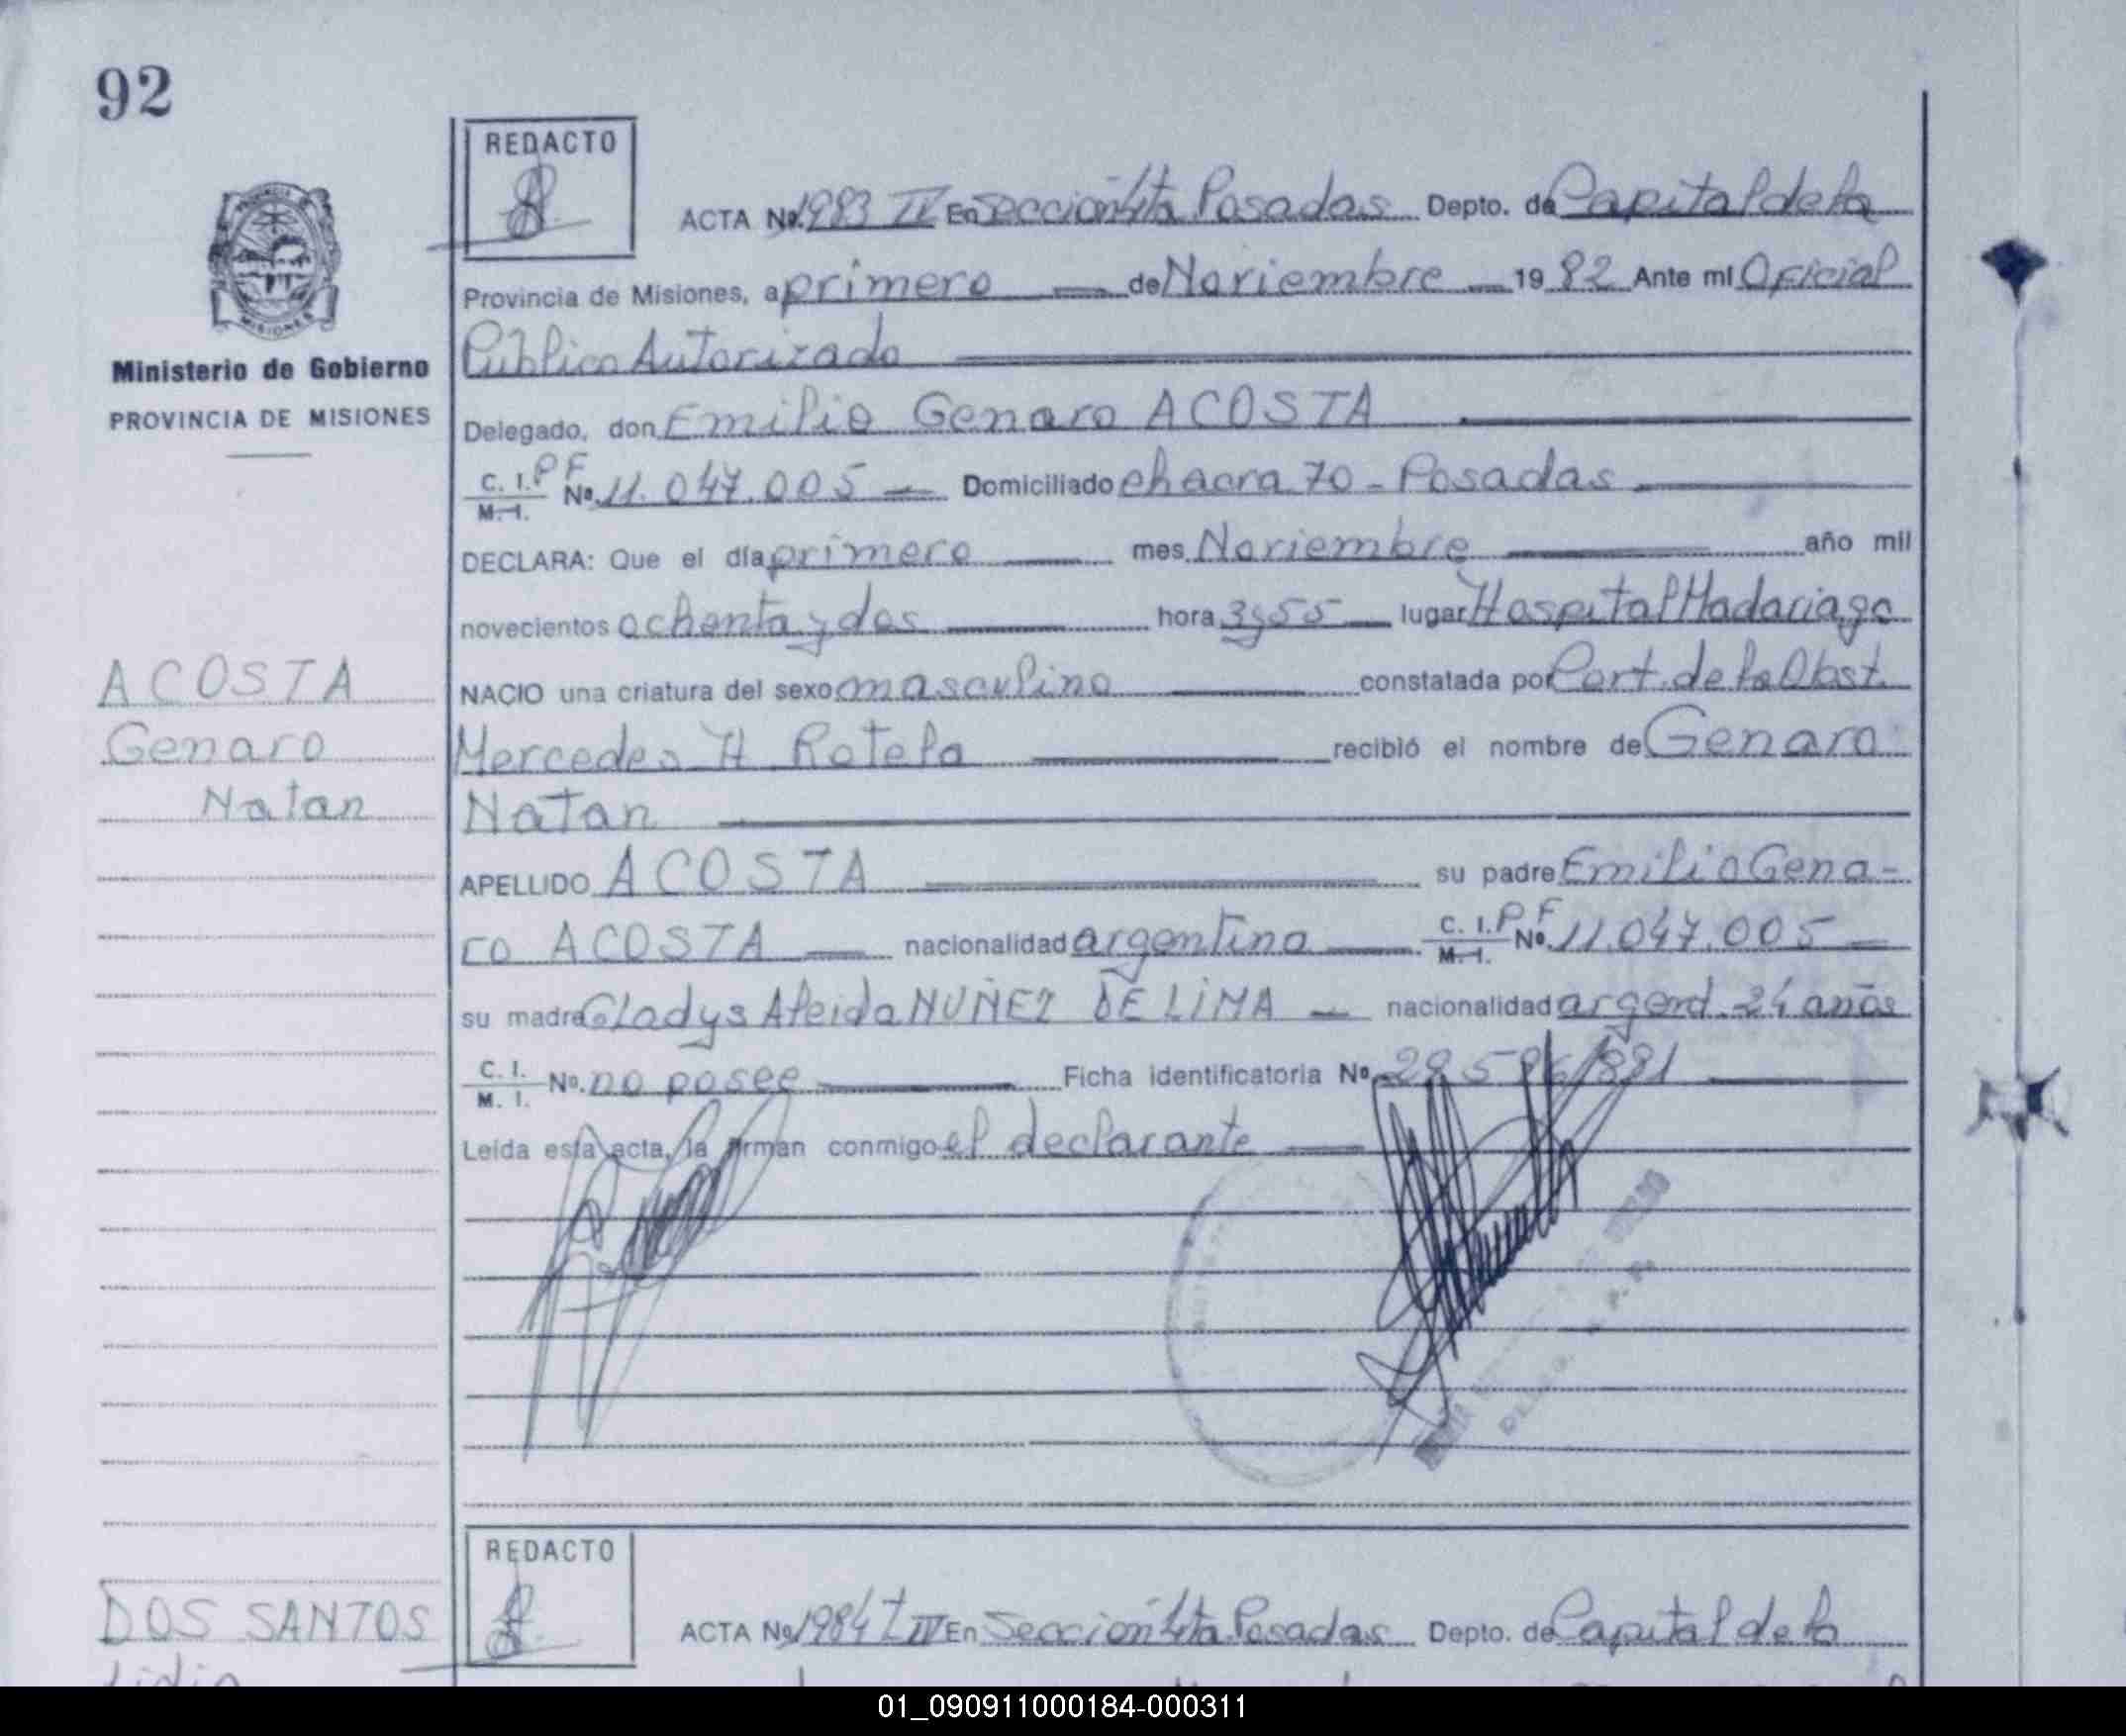 92
REDACTO
ACTA Nº 1983 IV En Sección 4ta Posadas Depto. de Capital de la
Provincia de Misiones, a primero de Noviembre 1982 Ante mí Oficial
Público Autorizado
Ministerio de Gobierno
PROVINCIA DE MISIONES
Delegado, don Emilio Genaro ACOSTA
C. I. P F
M. I. Nº 11.047.005 Domiciliado chacra 70 - Posadas
DECLARA: Que el día primero mes Noviembre año mil
novecientos ochenta y dos hora 3y55 lugar Hospital Madariaga
ACOSTA
Genaro
Natan
NACIO una criatura del sexo masculino constatada por Cert. de la Obst.
Mercedes H Rotela recibió el nombre de Genaro
Natan
APELLIDO ACOSTA su padre Emilio Gena-
ro ACOSTA nacionalidad argentina C. I. P F M. I. Nº 11.047.005
su madre Gladys Aleida NUÑEZ DE LIMA nacionalidad argent. 24 años
C. I.
M. I. Nº no posee Ficha identificatoria Nº
Leída esta acta, la firman conmigo el declarante
MISIONES
REDACTO
DOS SANTOS
Lidia
ACTA Nº 1984 T IV En Sección 4ta Posadas Depto. de Capital de la
01_090911000184-000311